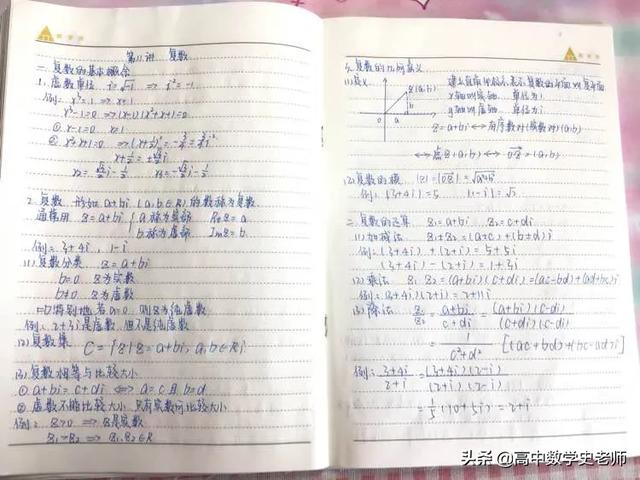 第11讲 复数
一. 复数的基本概念
1. 虚数单位 i=√-1 ⇒ i²=-1
例: x³=1 ⇒ x=1
x³-1=0 ⇒ (x-1)(x²+x+1)=0
① x-1=0 x=1
② x²+x+1=0 ⇒ (x+½)²=-¾=¾i²
x+½=±√3/2 i
x₂=√3/2 i-½ x₃=-√3/2 i-½
2. 复数 形如 a+bi (a,b∈R) 的数称为复数
通常用 z=a+bi { a 称为实部 Rez=a
b 称为虚部 Imz=b
例: 3+4i, 1-i
(1) 复数分类 z=a+bi
b=0 z为实数
b≠0 z为虚数
特别地 若a=0 则z为纯虚数
例: 2+3i是虚数 但不是纯虚数
(2) 复数集 C={z|z=a+bi, a,b∈R}
(3) 复数相等与比较大小
① a+bi=c+di ⟺ a=c且b=d
② 虚数不能比较大小 只有实数可比较大小
例: z>0 ⇒ z是实数
z₁>z₂ ⇒ z₁,z₂∈R
3. 复数的几何意义
(1) 定义
建立直角坐标系表示复数的平面叫复平面
x轴叫实轴 单位为1
y轴叫虚轴 单位为i
z(a,b)
b
a
z=a+bi ⟷ 有序数对(实数对)(a,b)
⟷ 点z(a,b) ⟷ OZ=(a,b)
(2) 复数的模 |z|=|OZ|=√a²+b²
例: |3+4i|=5 |1-i|=√2
二. 复数的运算 z₁=a+bi z₂=c+di
(1) 加减法 z₁+z₂=(a+c)+(b+d)i
例: (3+4i)+(2+i)=5+5i
(3+4i)-(2+i)=1+3i
(2) 乘法 z₁z₂=(a+bi)(c+di)=(ac-bd)+(ad+bc)i
例: (3+4i)(2+i)=2+11i
(3) 除法 z₁/z₂=(a+bi)/(c+di)=(a+bi)(c-di)/(c+di)(c-di)
=1/(c²+d²) [(ac+bd)+(bc-ad)i]
例: (3+4i)/(2+i)=(3+4i)(2-i)/(2+i)(2-i)
=⅕(10+5i)=2+i
头条 @高中数学史老师